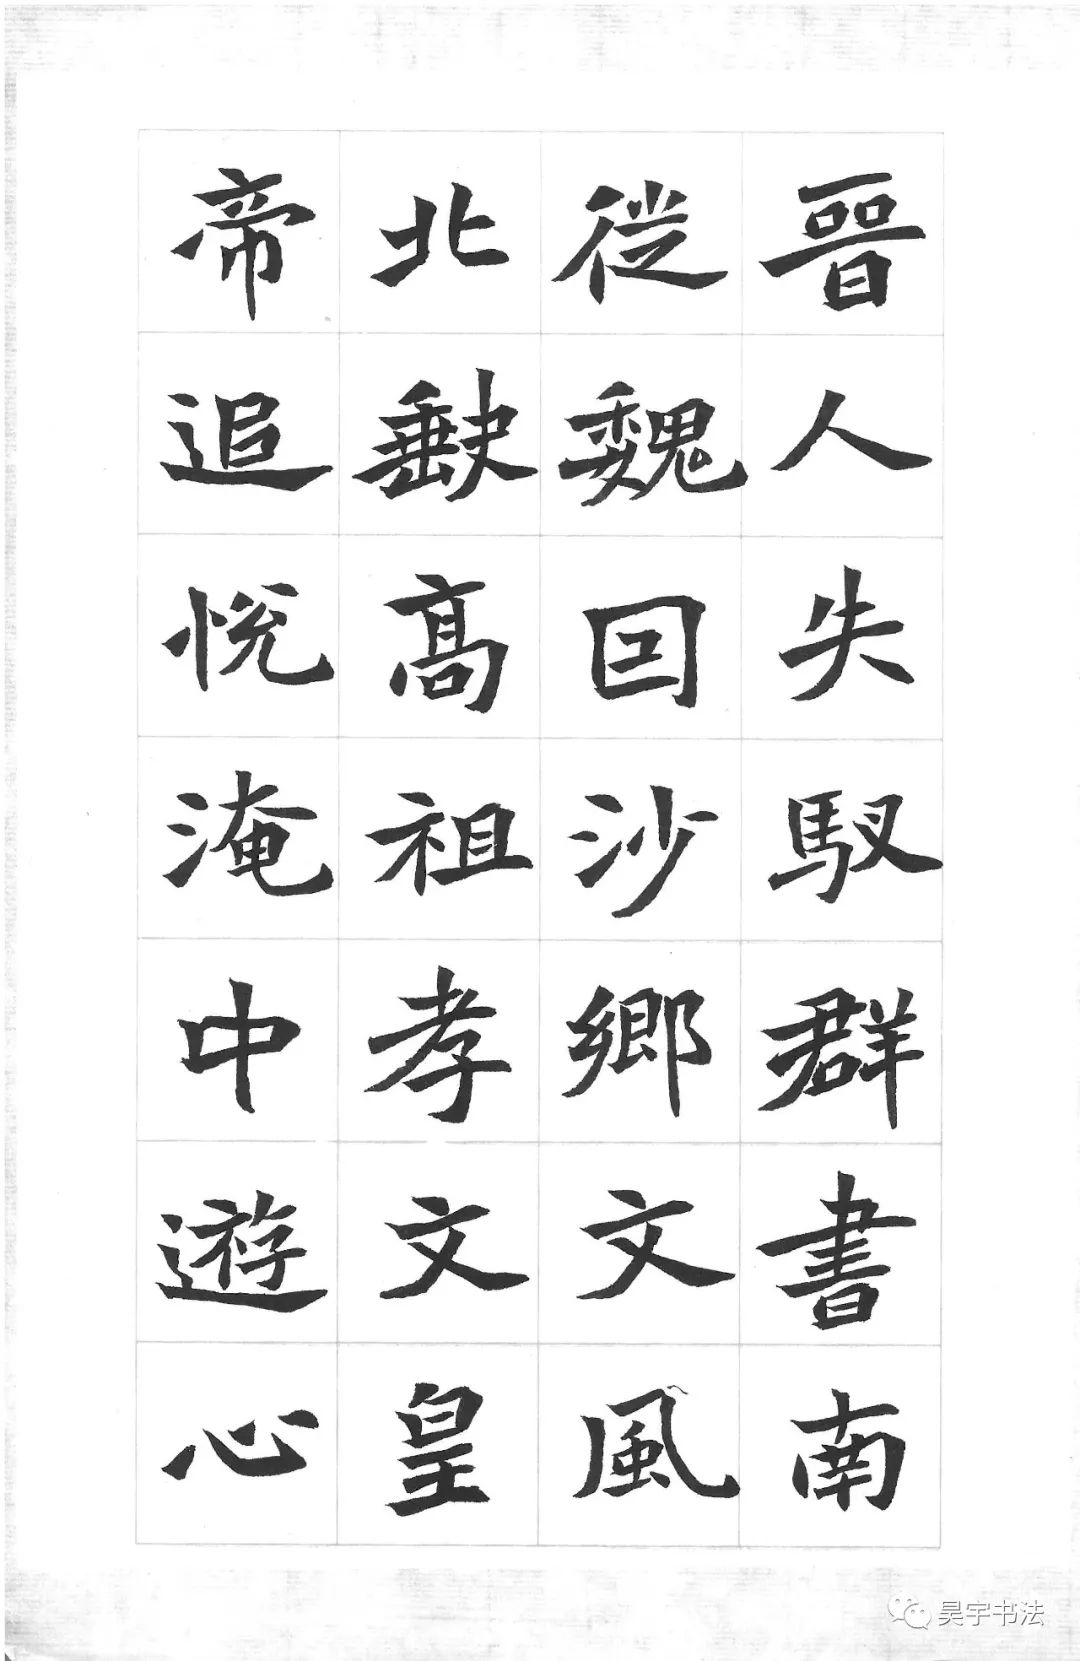 晉人失馭群書南
徙魏囙沙鄉文風
北缺高祖孝文皇
帝追悅淹中遊心
昊宇书法